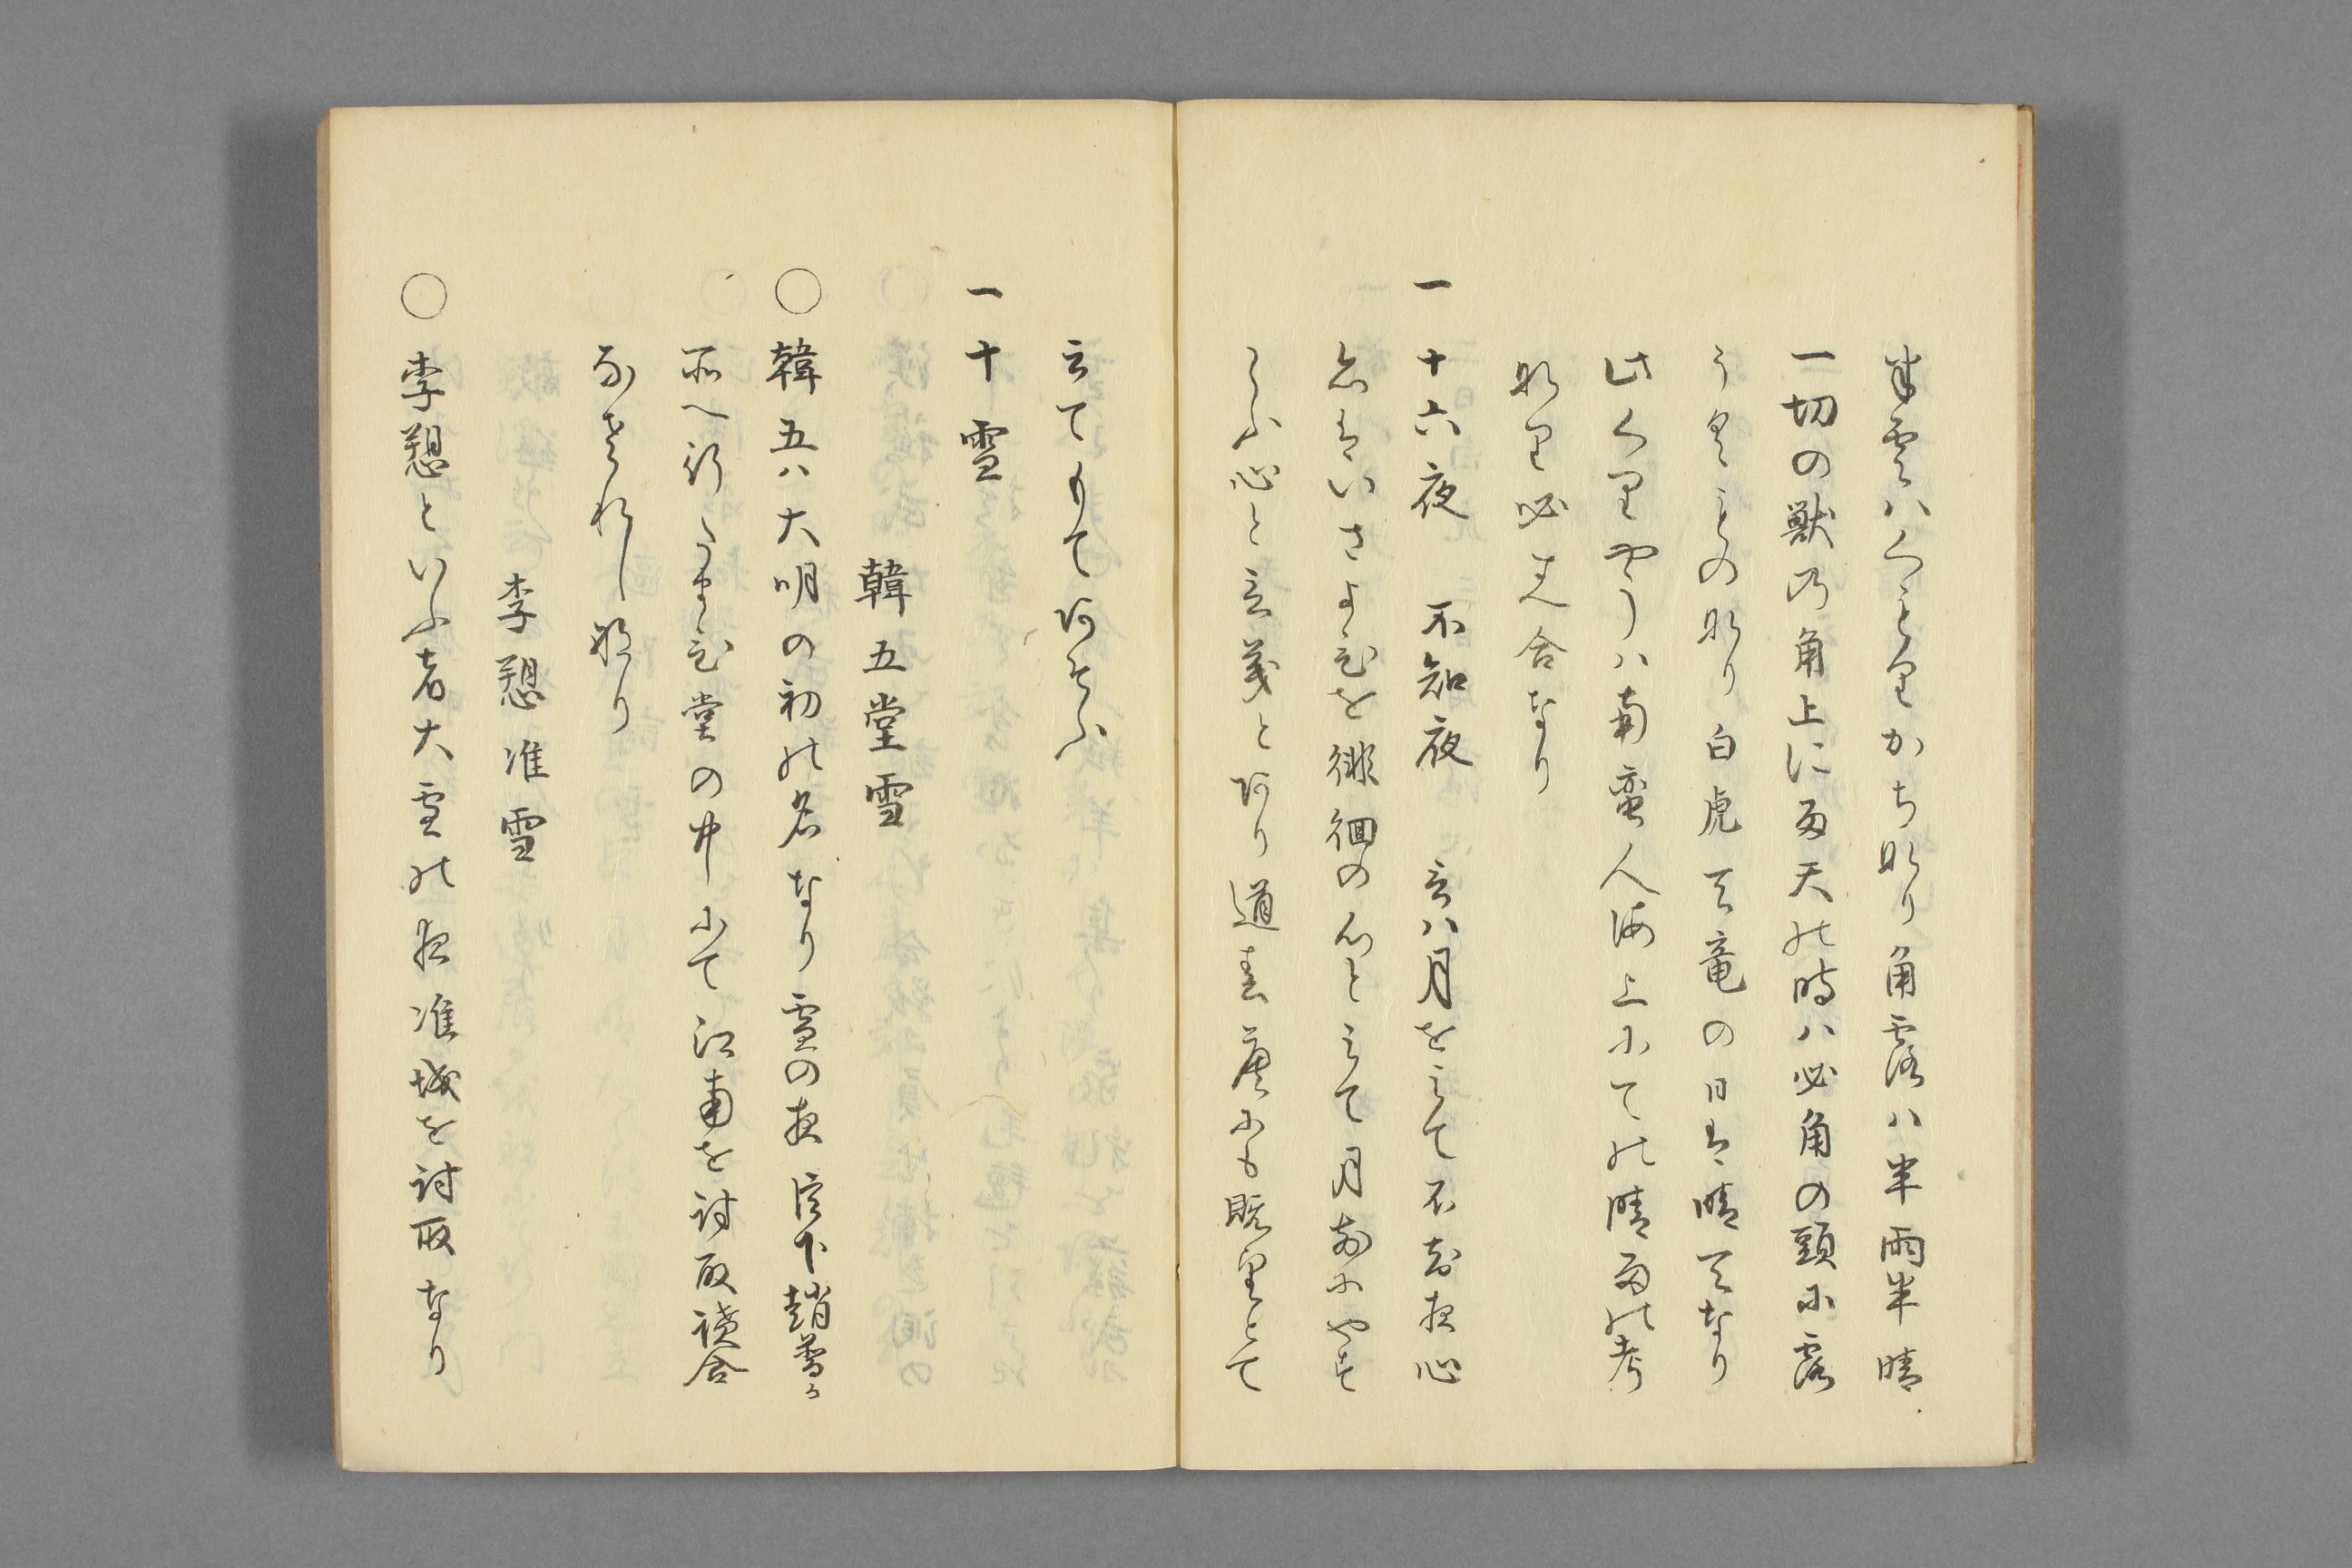 半雲ハくもりかちなり角露ハ半雨半晴
一切の獣乃角上に雨天の時ハ必角の頭に露
うくものなり白虎天竜の日は晴天なり
此くりやうハ南蛮人海上にての晴雨の考
なり必其合なり
一 十六夜 不知夜 言ハ月をミて不知夜心
也はいさよひを徘徊の心とミて月前にやす
らふ心と言義とあり道春廣にも既望とて
言てもてあそふ
一 十雪
韓五堂雪
○ 韓五ハ大明の初の名なり雪の夜臣下趙普か
所へ行たまひ堂の中にて江南を討取議合
なされし也
李愬淮雪
○ 李愬といふ者大雪の夜淮城を討取なり